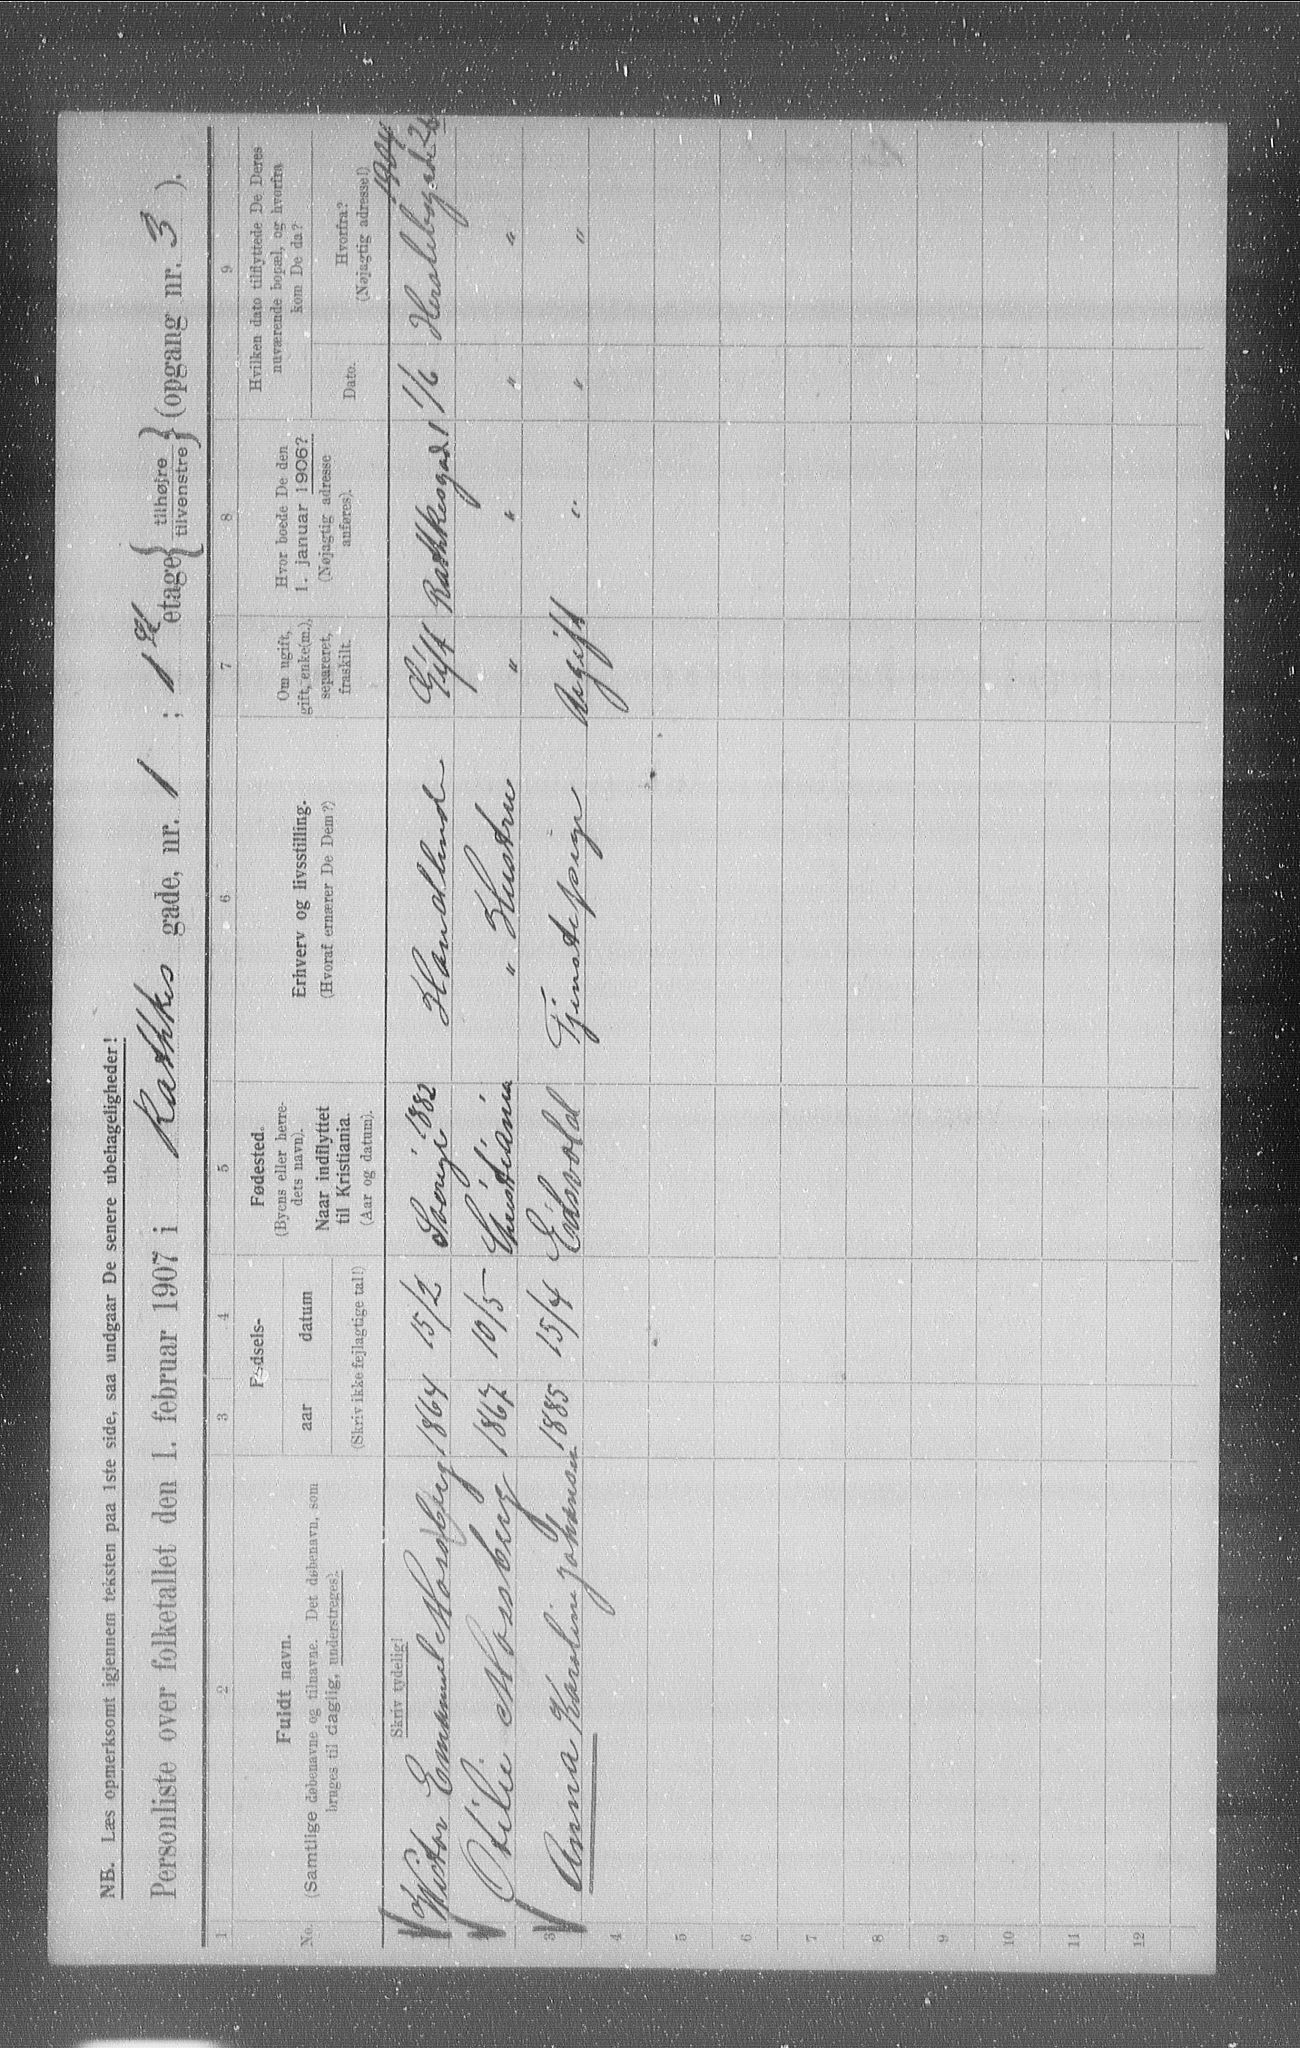 NB. Læs opmerksomt igjennem teksten paa 1ste side, saa undgaar De senere ubehageligheder!
Personliste over folketallet den 1. februar 1907 i Rathkes gade, nr. 1 ; 1ste etage { tilhøjre / tilvenstre } (opgang nr. 3 ).
1 2 3 4 5 6 7 8 9
No.
Fuldt navn.
(Samtlige døbenavne og tilnavne. Det døbenavn, som
bruges til daglig, understreges).
Fødsels-
aar datum
(Skriv ikke fejlagtige tal!)
Fødested.
(Byens eller herre-
dets navn).
Naar indflyttet
til Kristiania.
(Aar og datum).
Erhverv og livsstilling.
(Hvoraf ernærer De Dem?)
Om ugift,
gift, enke(m.),
separeret,
fraskilt.
Hvor boede De den
1. januar 1906?
(Nøjagtig adresse
anføres).
Hvilken dato tilflyttede De Deres
nuværende bopæl, og hvorfra
kom De da?
Dato.
Hvorfra?
(Nøjagtig adresse!)
Skriv tydelig!
1882 1904
Victor Emanuel Mossberg 1864 15/2 Sverige Handlende Gift Rathkesgade 1 1/6 Herslebsgade 26
Otilie Mossberg 1867 10/5 Christiania " Hustru " " " "
3 Anna Karoline Johansen 1885 15/4 Eidsvold Tjenestepige Ugift " " "
4
5
6
7
8
9
10
11
12